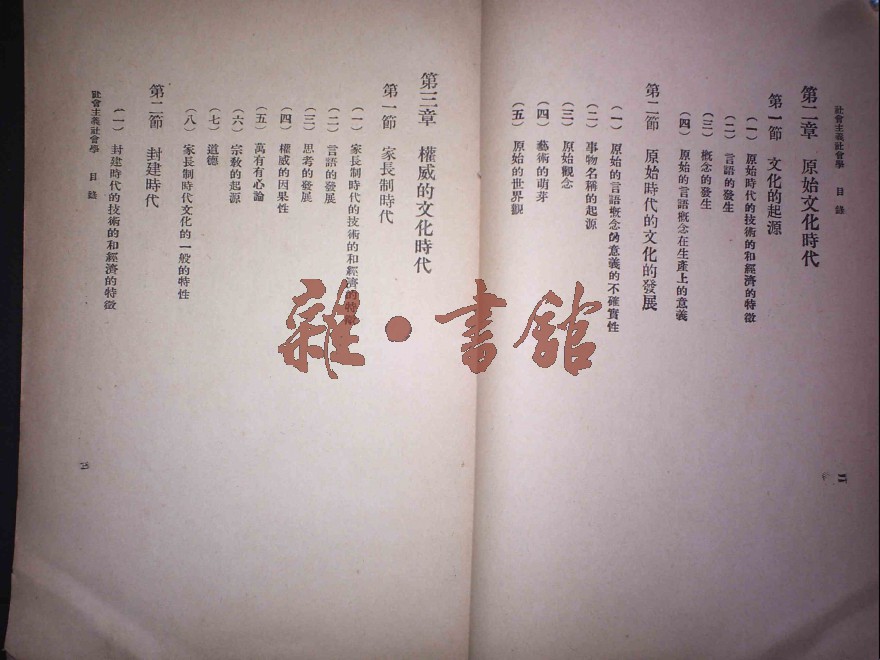 社會主義社會學　目錄
第二章　原始文化時代
第一節　文化的起源
（一）原始時代的技術的和經濟的特徵
（二）言語的發生
（三）概念的發生
（四）原始的言語概念在生產上的意義
第二節　原始時代的文化的發展
（一）原始的言語概念的意義的不確實性
（二）事物名稱的起源
（三）原始觀念
（四）藝術的萌芽
（五）原始的世界觀
二
第三章　權威的文化時代
第一節　家長制時代
（一）家長制時代的技術的和經濟的特徵
（二）言語的發展
（三）思考的發展
（四）權威的因果性
（五）萬有有心論
（六）宗教的起源
（七）道德
（八）家長制時代文化的一般的特性
第二節　封建時代
（一）封建時代的技術的和經濟的特徵
社會主義社會學　目錄
三
雜・書館